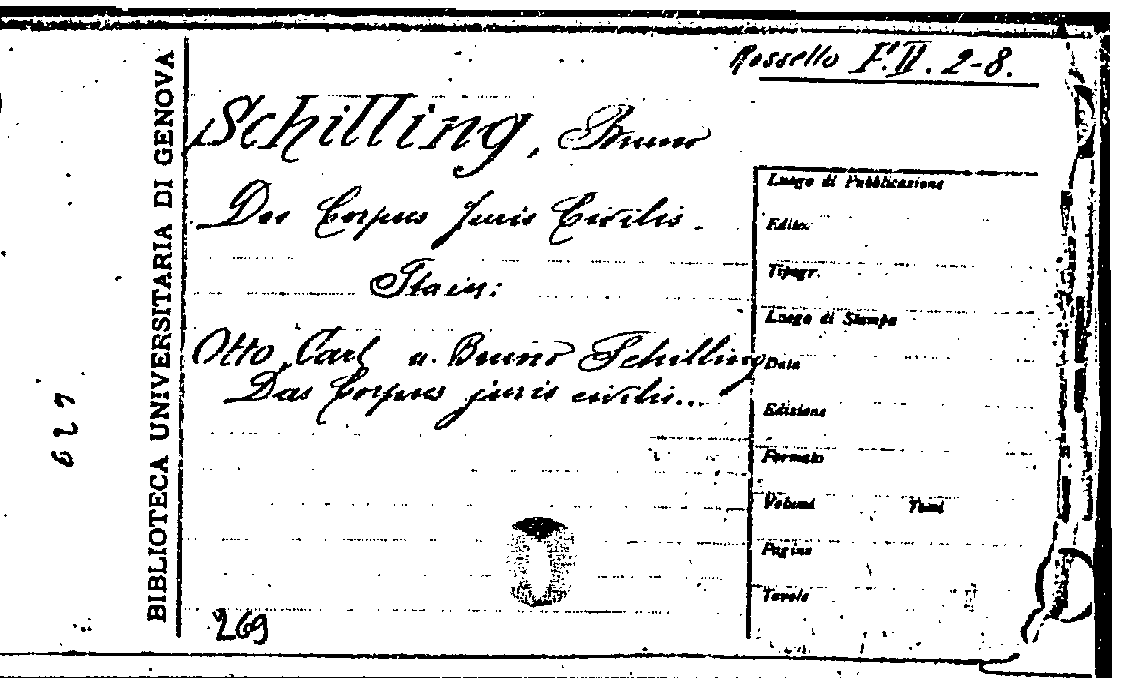 Rossello F. II. 2-8.
BIBLIOTECA UNIVERSITARIA DI GENOVA
Schilling, Bruno
Das Corpus Juris Civilis.
Sta in:
Otto, Carl u. Bruno Schilling
Das Corpus juris civilis...
Luogo di Pubblicazione
Edito.
Tipogr.
Luogo di Stampa
Data
Edizione
Formato
Volumi Tomi
Pagine
Tavole
269